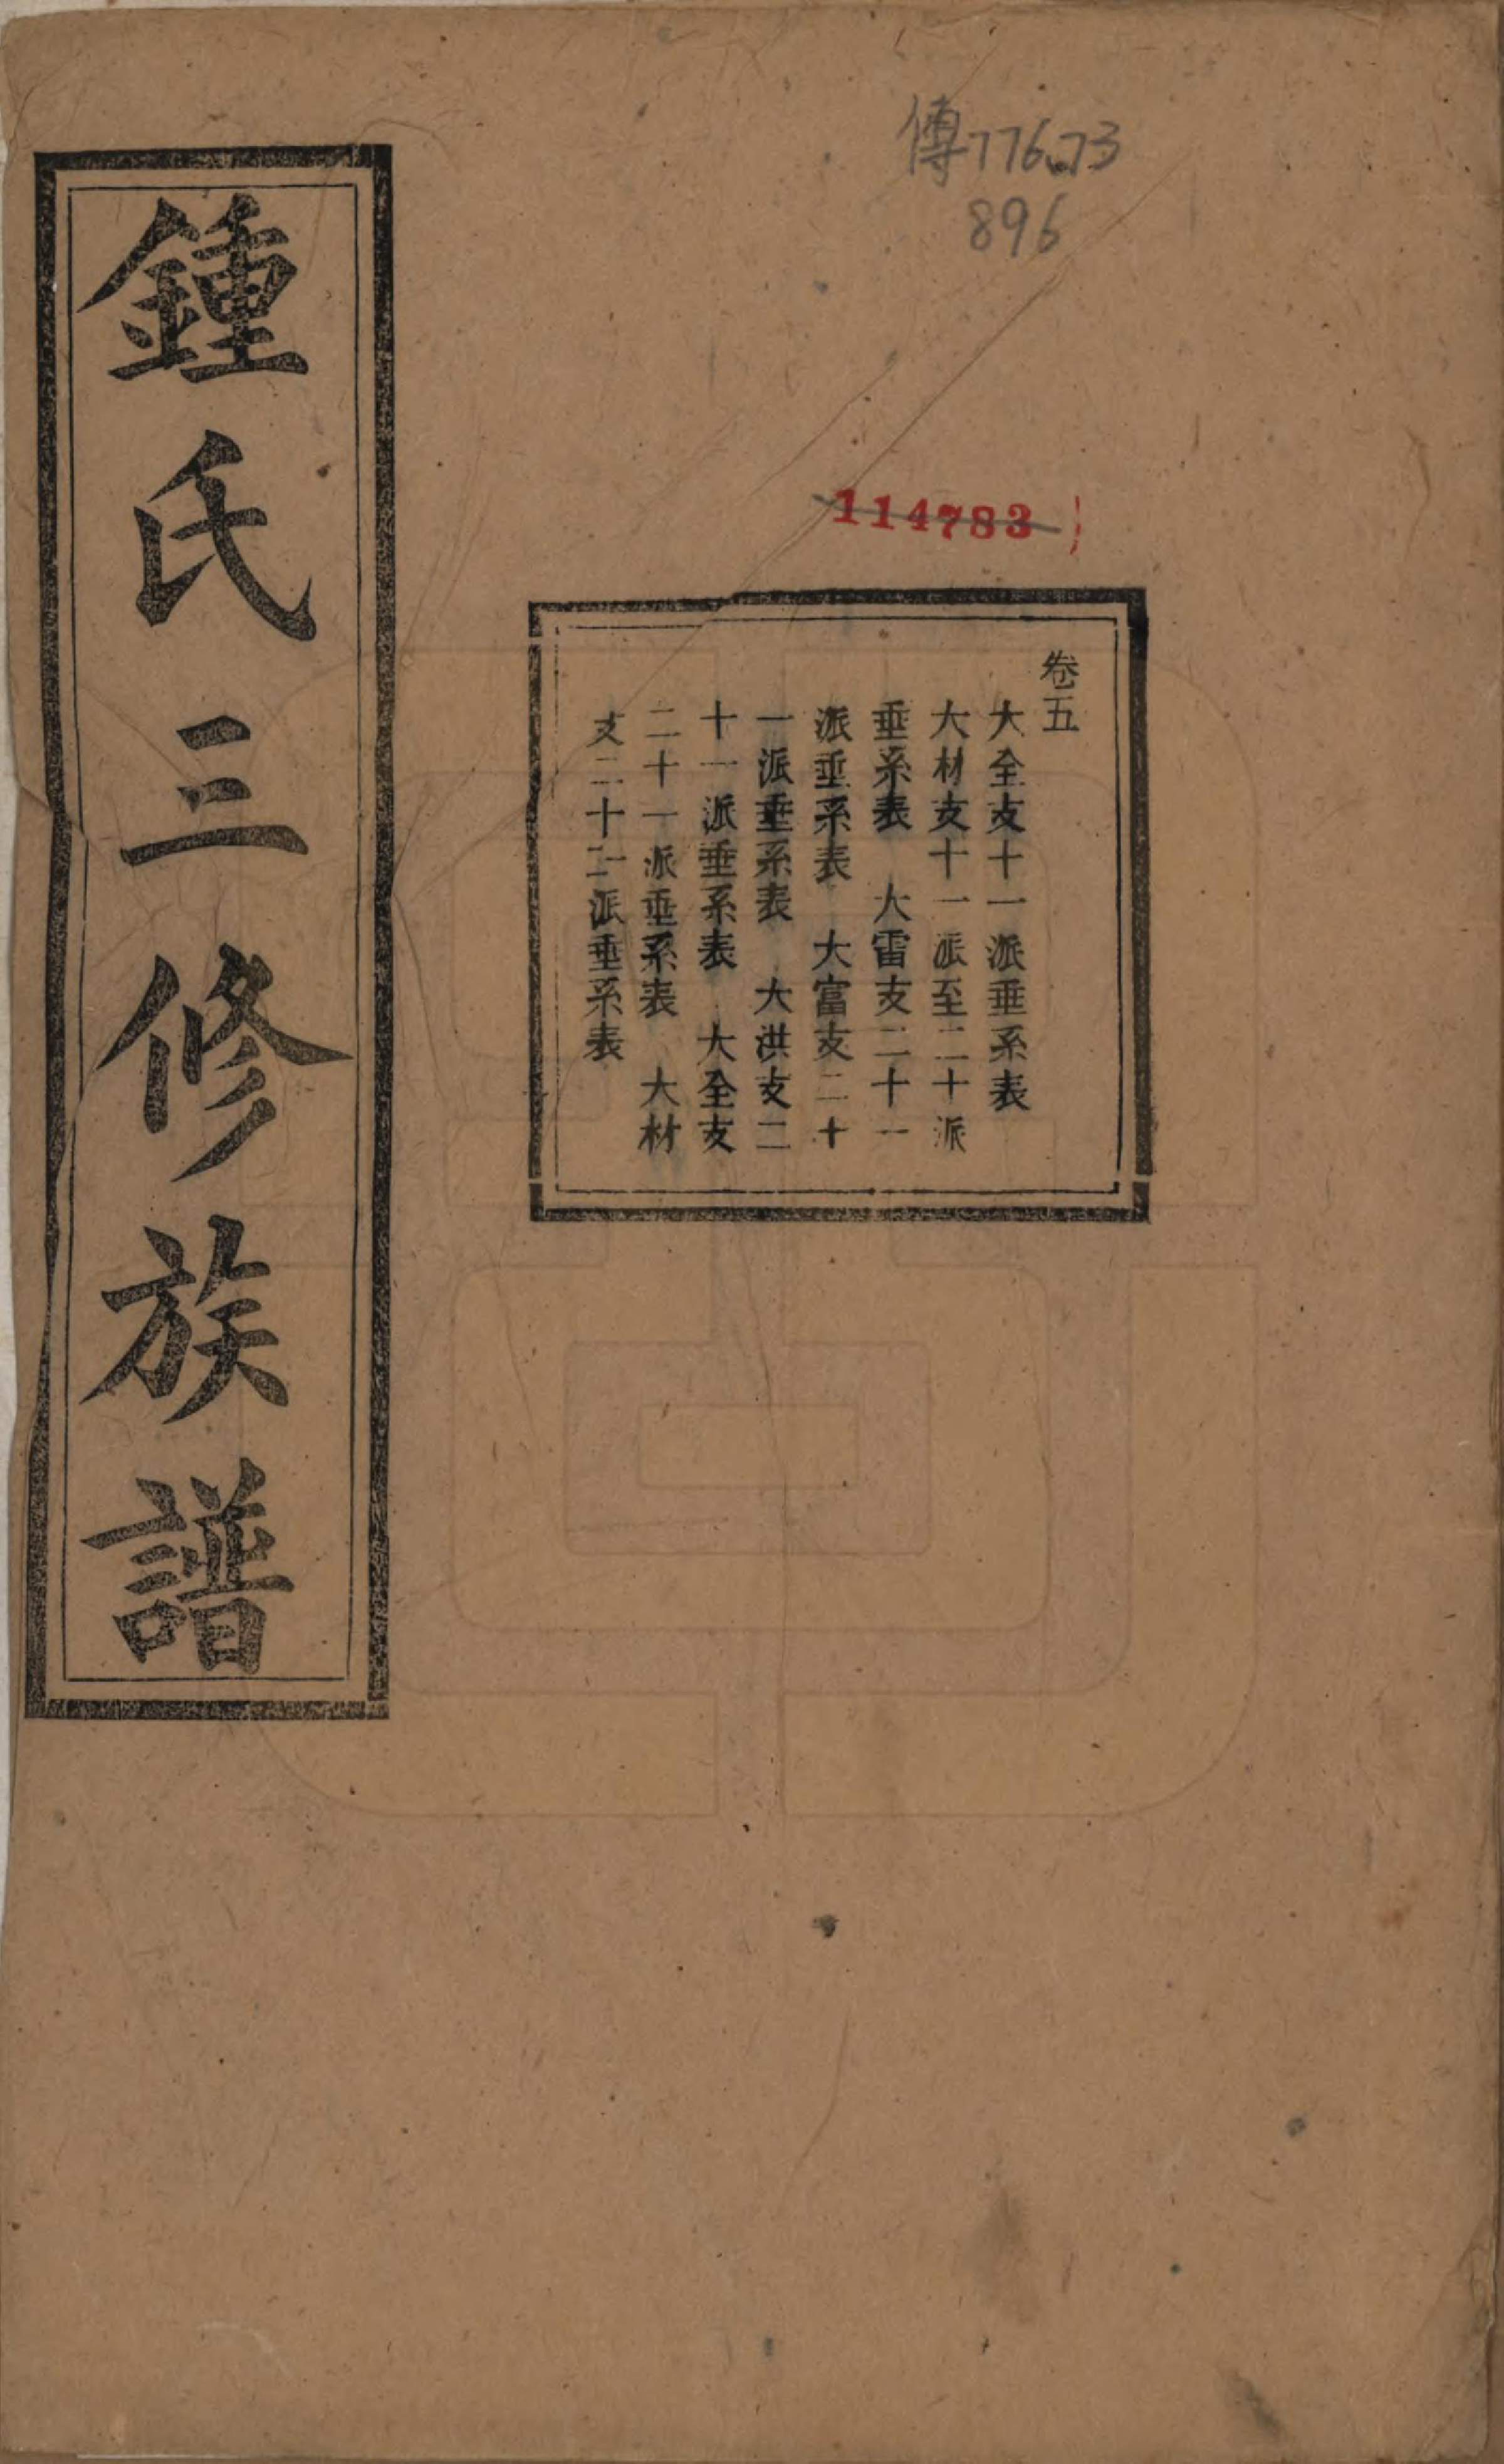 傳776.73
896
114783
卷五
大全支十一派垂系表
大材支十一派至二十派
垂系表 大雷支二十一
派垂系表 大富支二十
一派垂系表 大洪支二
十一派垂系表 大全支
二十一派垂系表 大材
支二十一派垂系表
鍾氏三修族譜